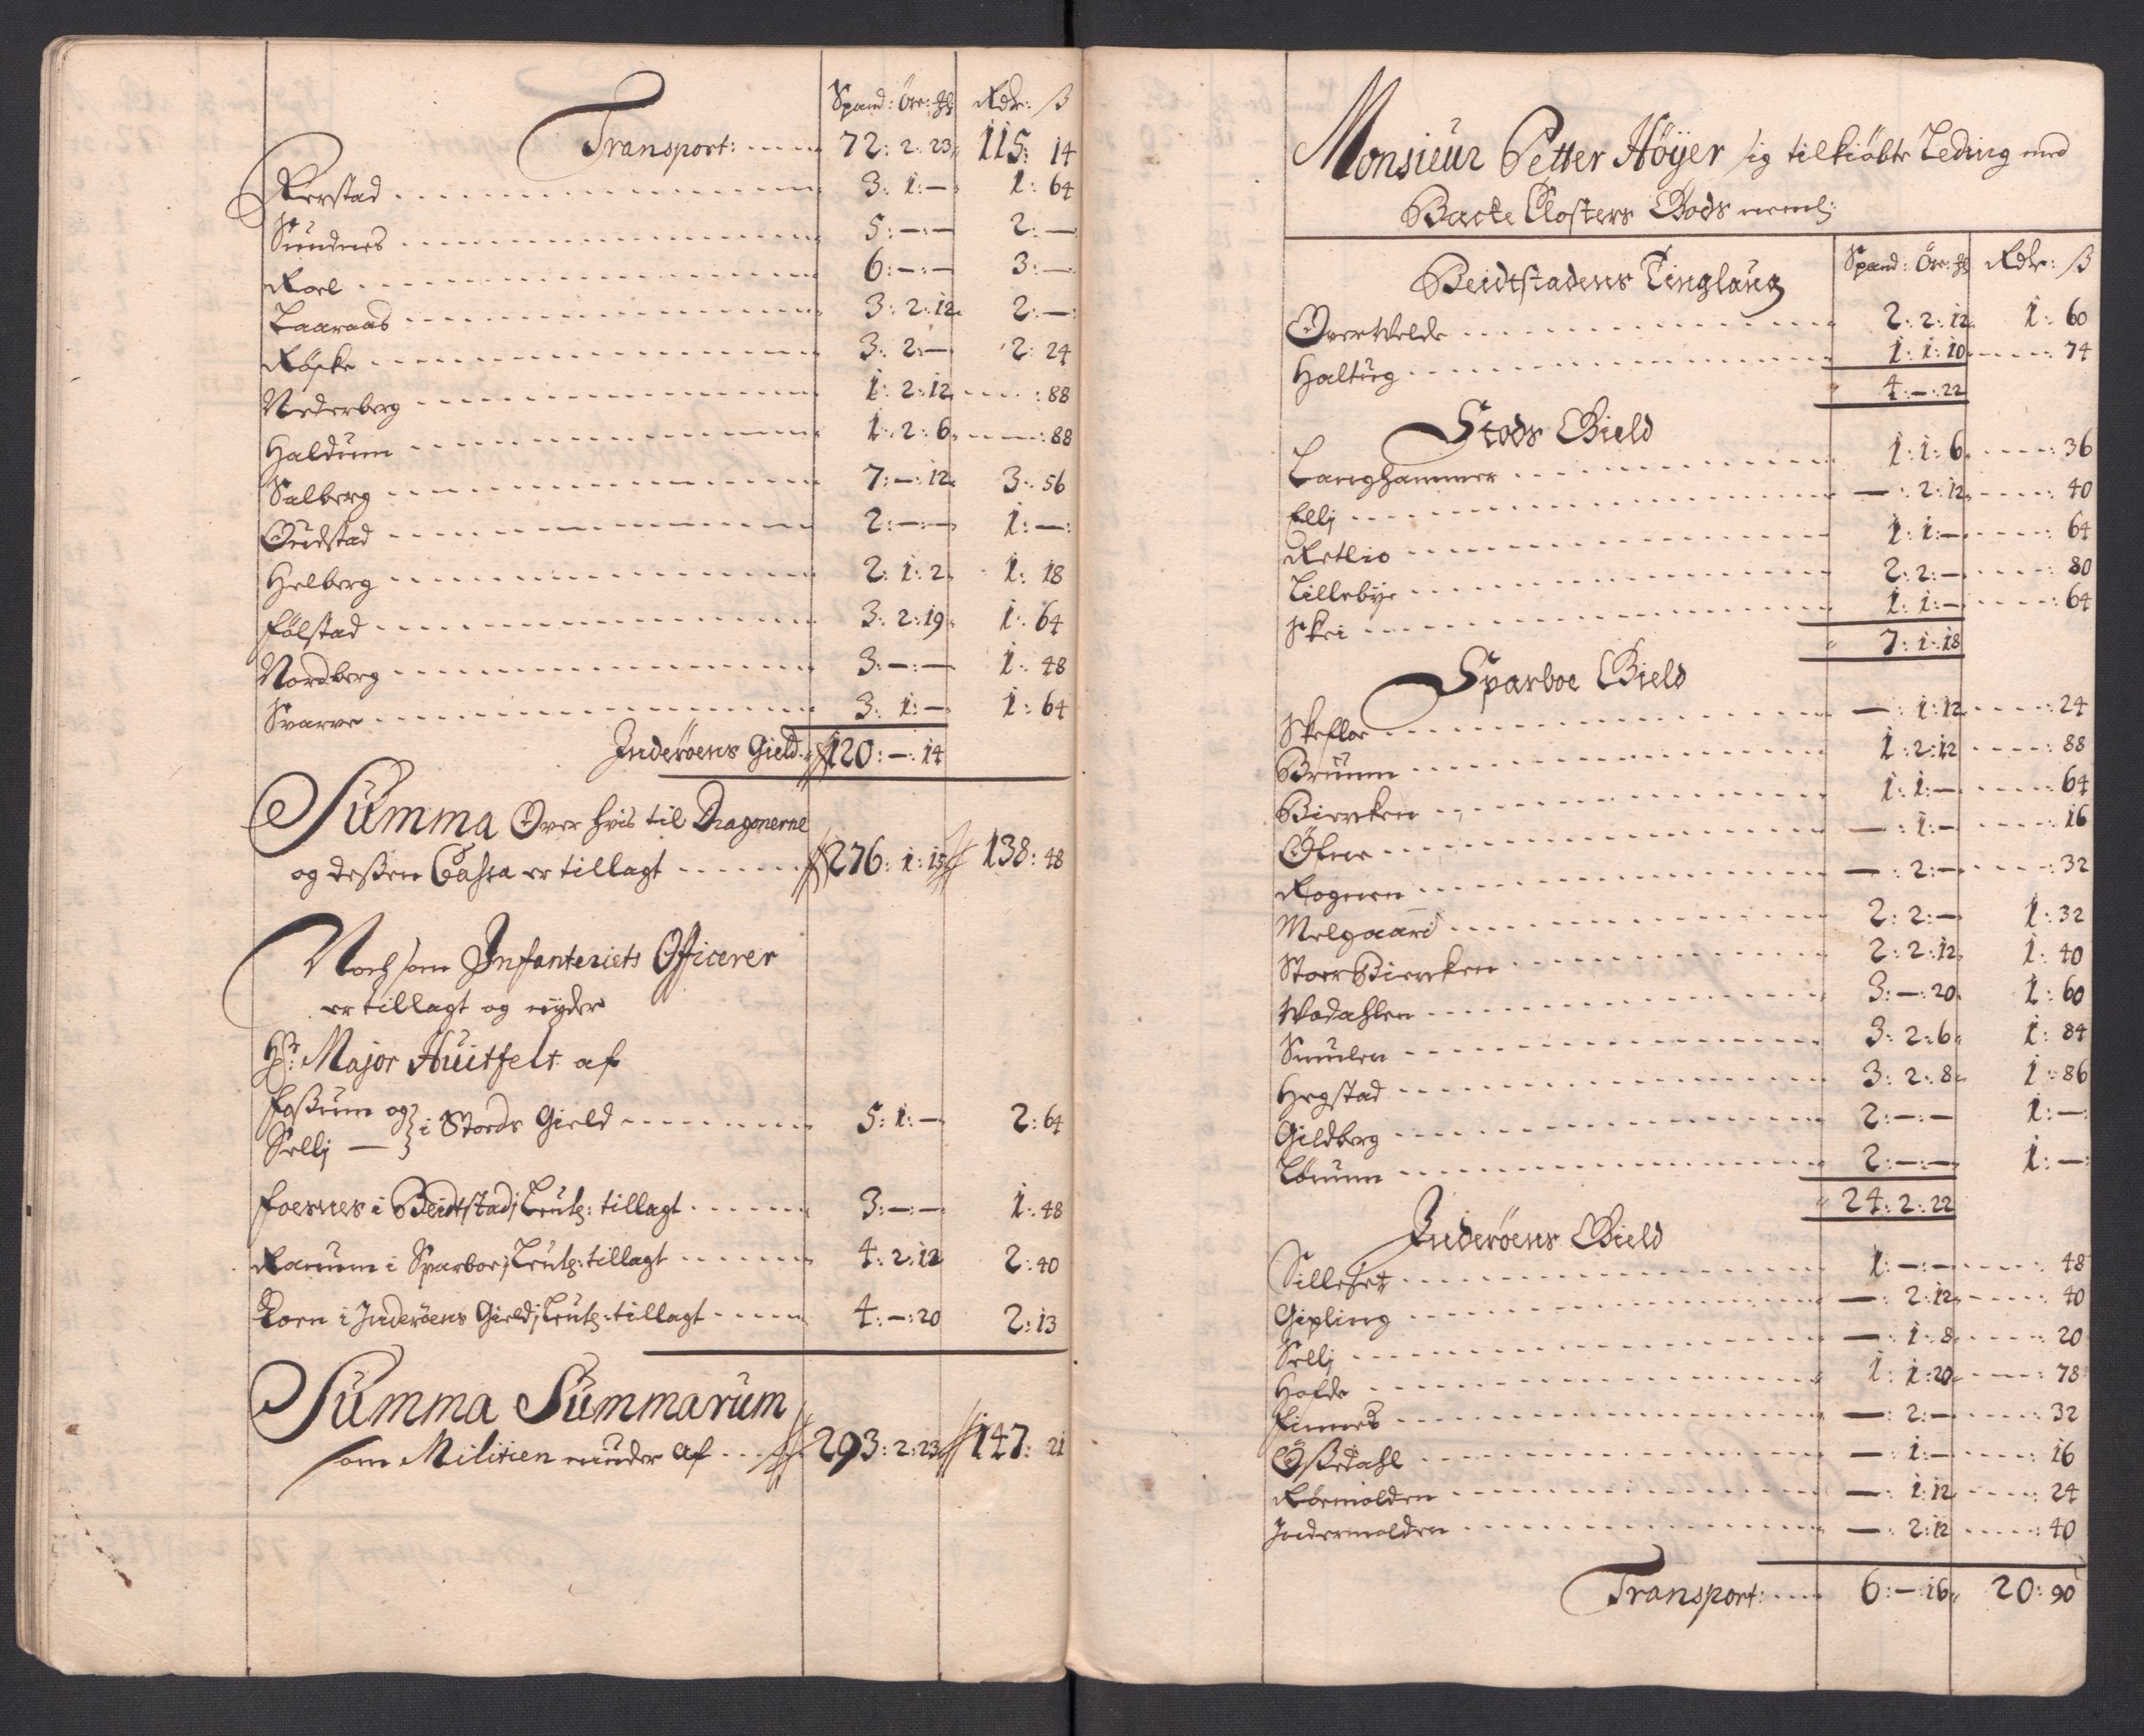 Spand: Öre: ꝳ Rdr: ß
Transport: 72: 2: 23 115: 14
Rerstad 3: 1: — 1: 64
Sundnes 5: —: — 2: —
Roel 6: —: — 3: —
Laaraas 3: 2: 12 2: —
Røske 3: 2: — 2: 24
Nederberg 1: 2: 12 : 88
Haldum 1: 2: 6 : 88
Salberg 7: —: 12 3: 56
Oudstad 2: —: — 1: —
Helberg 2: 1: 2 1: 18
Følstad 3: 2: 19 1: 64
Nordberg 3: —: — 1: 48
Svarve 3: 1: — 1: 64
Inderøens Gield 120: —: 14
Summa Over hvis til Dragonerne
og deßen Cassa er tillagt 276: 1: 15 138: 48
Noch som Infanteriets Officerer
er tillagt og nyder
Hr: Major Huitfelt af
Foßum og
Sellj — } i Stords Gield 5: 1: — 2: 64
Foesnes i Beidtstad, Leutz: tillagt 3: —: — 1: 48
Ranum i Sparboe, Leutz: tillagt 4: 2: 12 2: 40
Korn i Inderøens Gield, Leutz: tillagt 4: —: 20 2: 13
Summa Summarum
som Militien nÿder af 293: 2: 23 147: 21
Monsieur Petter Höÿer sig tilkiøbte Leding med
Backe Closters Gods neml:
Beidtstadens Tinglaug Spand: Öre: ꝳ Rdr: ß
OverWelde 2: 2: 12 1: 60
Haltug 1: 1: 10 : 74
4: —: 22
Stods Gield
Langhammer 1: 1: 6 : 36
Ellj —: 2: 12 : 40
Retlio 1: 1: — : 64
Lillebÿe 2: 2: — : 80
Skei 1: 1: — : 64
7: 1: 18
Sparboe Gield
Skefloe —: 1: 12 : 24
Bruum 1: 2: 12 : 88
Biercken 1: 1: — : 64
Öfne —: 1: — : 16
Rognen —: 2: — : 32
Melgaard 2: 2: — 1: 32
StoerBiercken 2: 2: 12 1: 40
Wodahlen 3: —: 20 1: 60
Smulen 3: 2: 6 1: 84
Hegstad 3: 2: 8 1: 86
Gildberg 2: —: — 1: —
Lørum 2: —: — 1: —
24: 2: 22
Inderøens Gield
Silleset 1: —: — : 48
Gipling —: 2: 12 : 40
Sellj —: 1: 8 : 20
Hofde 1: 1: 20 : 78
Finnes —: 2: — : 32
Ößedahl —: 1: — : 16
Rørmolden —: 1: 12 : 24
Indermolden —: 2: 12 : 40
Transport: 6: —: 16 20: 90